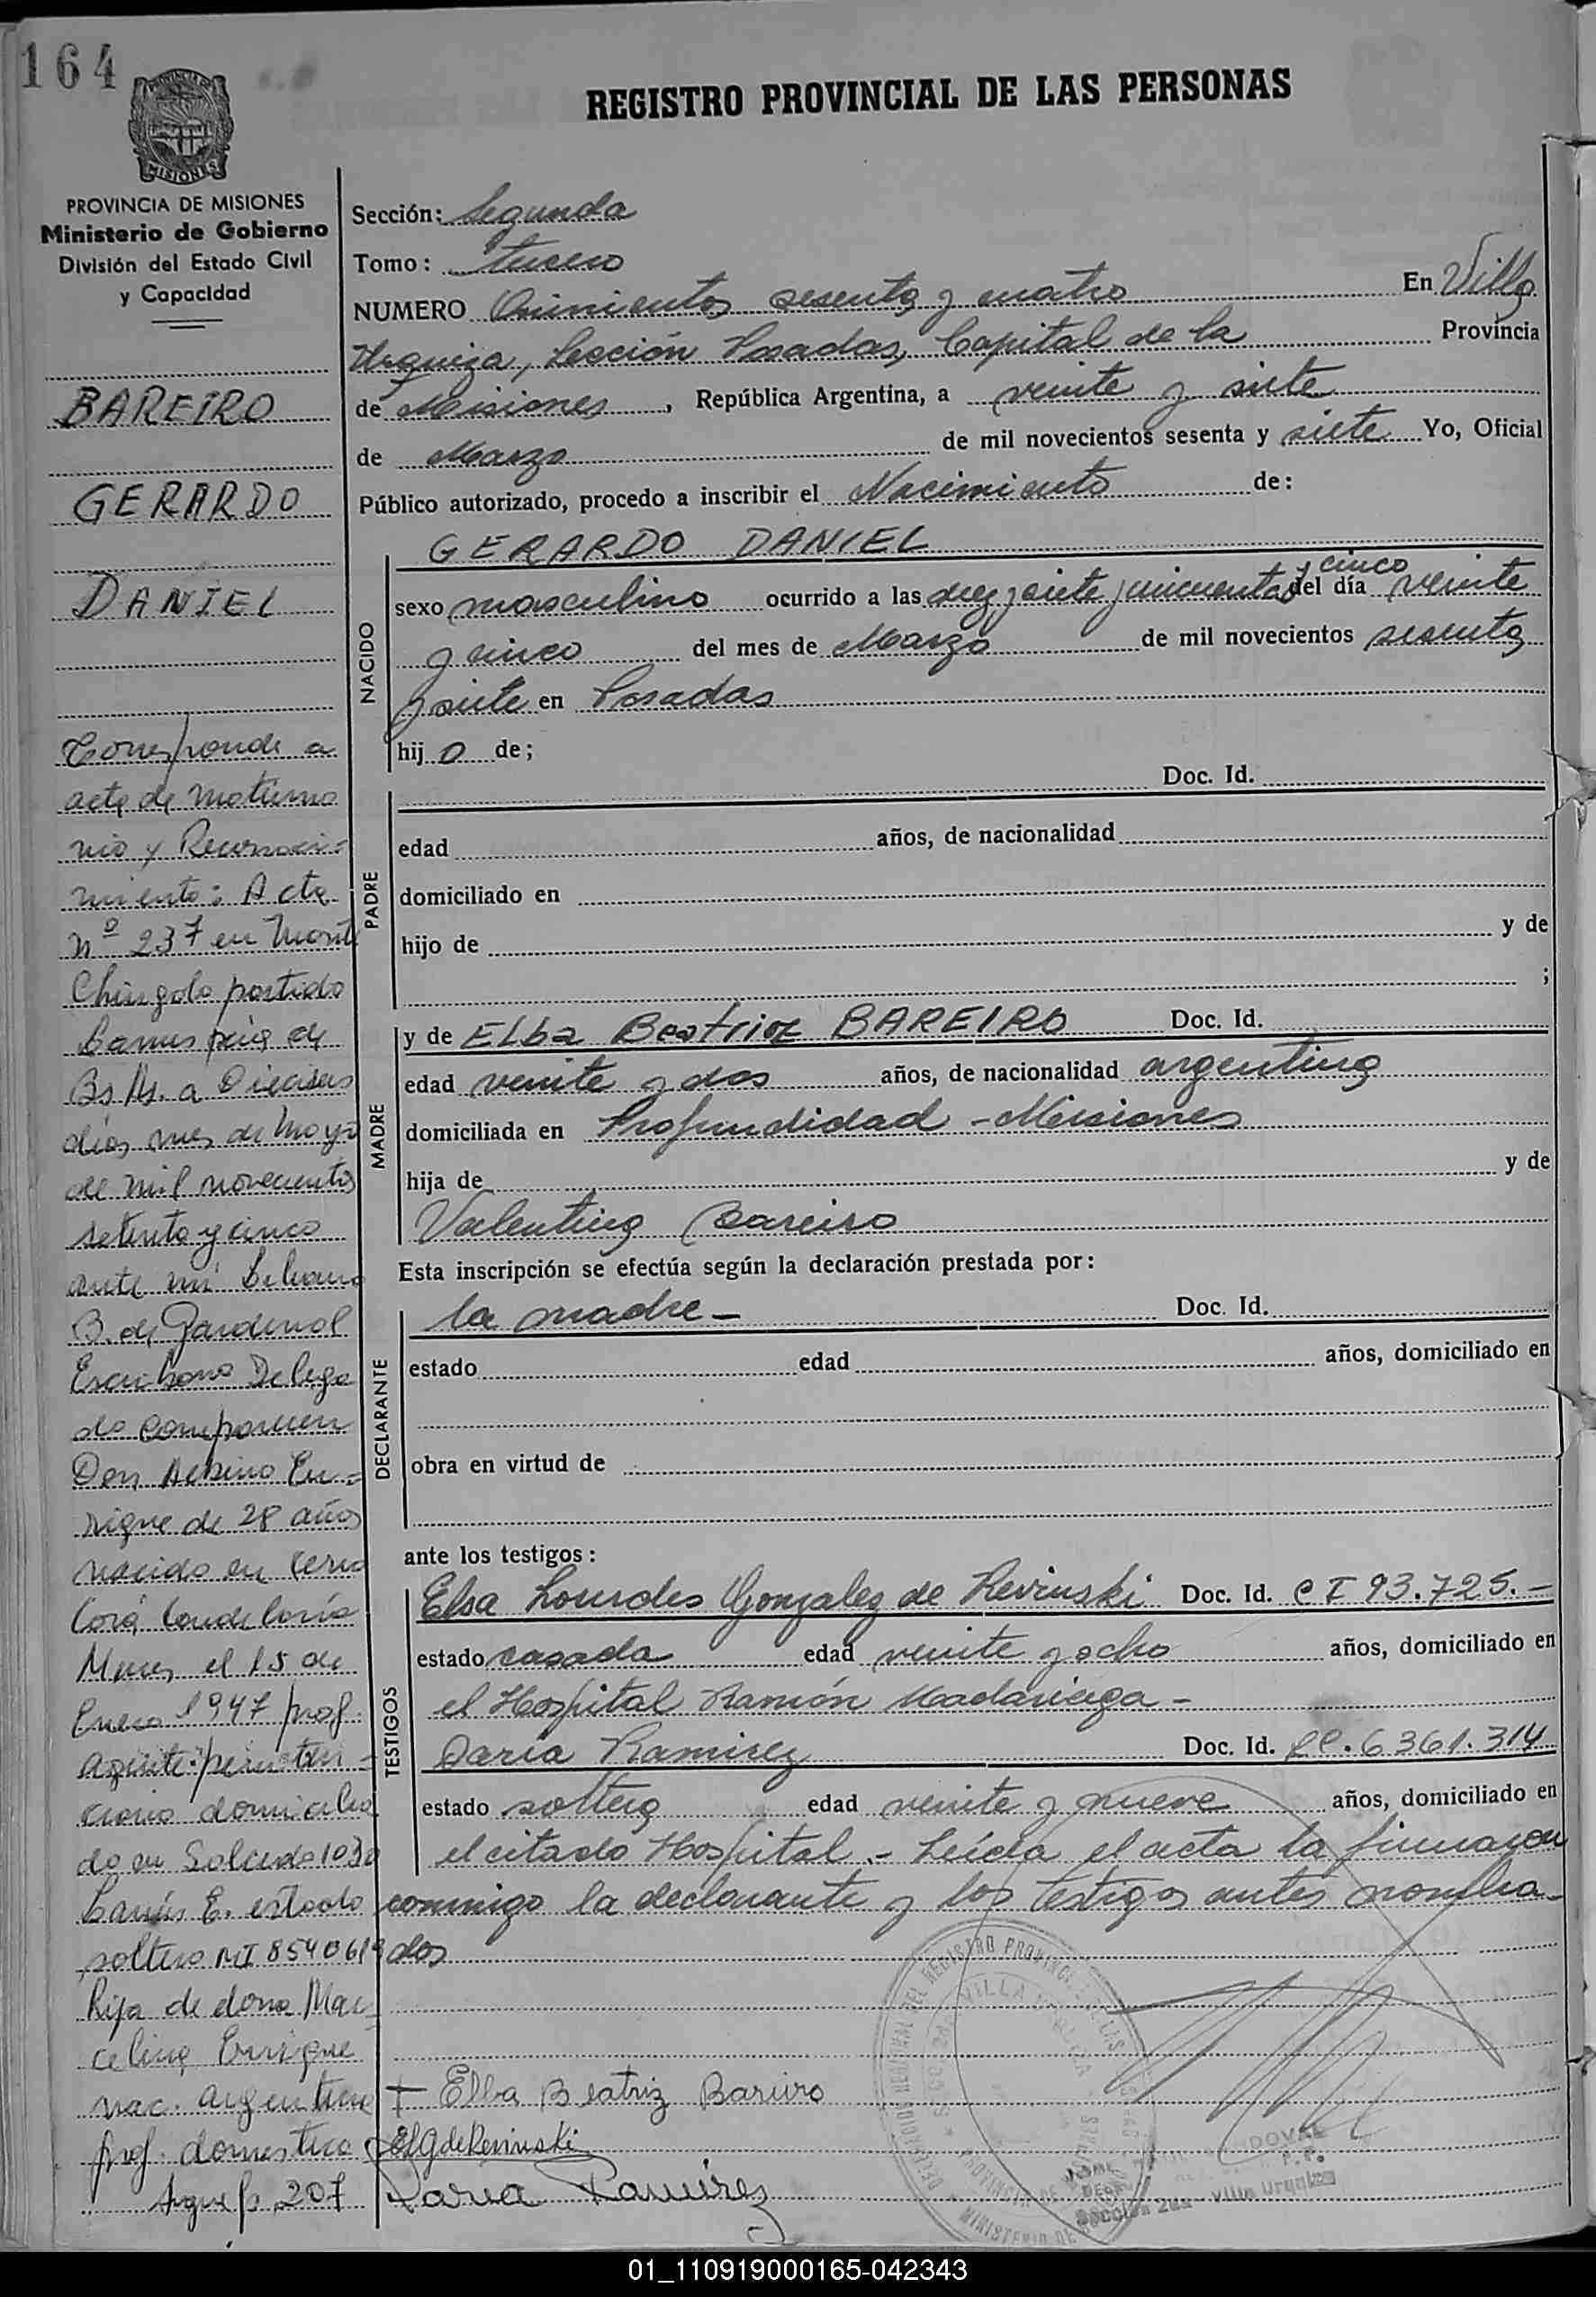 164
PROVINCIA DE MISIONES
Ministerio de Gobierno
División del Estado Civil
y Capacidad
BAREIRO
GERARDO
DANIEL
Corresponde a
acta de matrimo
nio y Reconoci-
miento: Acta
Nº 237 en Mont
Chingolo partido
Lanus pcia de
Bs As. a Dieciseis
dias mes de Mayo
de mil novecientos
setenta y cinco
ante mi
B. de Gardenal
Escribano Delega
do comparecen
Don Albino En-
rique de 28 años
nacido en Cerro
Corá Candelaria
Mnes, el 15 de
Enero 1947 prof.
agente peniten-
ciario domicilia
do en Salcedo 1030
Lanús E. estado
soltero MI 8540619
hijo de dona Mar
celina Enrique
nac. argentina
prof. domestica
Sigue fo 207
REGISTRO PROVINCIAL DE LAS PERSONAS
Sección: Segunda
Tomo: tercero
NUMERO Quinientos sesenta y cuatro En Villa
Urquiza, Sección Posadas, Capital de la Provincia
de Misiones, República Argentina, a veinte y siete
de Marzo de mil novecientos sesenta y siete Yo, Oficial
Público autorizado, procedo a inscribir el Nacimiento de:
GERARDO DANIEL
NACIDO
y cinco
sexo masculino ocurrido a las diez y siete y cincuenta del día veinte
y cinco del mes de Marzo de mil novecientos sesenta
y siete en Posadas
hij o de;
PADRE
Doc. Id.
edad años, de nacionalidad
domiciliado en
hijo de y de
;
MADRE
y de Elba Beatriz BAREIRO Doc. Id.
edad veinte y dos años, de nacionalidad argentina
domiciliada en Profundidad - Misiones
hija de y de
Valentina Bareiro
Esta inscripción se efectúa según la declaración prestada por:
DECLARANTE
la madre - Doc. Id.
estado edad años, domiciliado en
obra en virtud de
ante los testigos:
TESTIGOS
Elsa Lourdes Gonzalez de Revinski Doc. Id. C I 93.725.-
estado casada edad veinte y ocho años, domiciliado en
el Hospital Ramón Madariaga -
Daria Ramirez Doc. Id. LC. 6361.314
estado soltera edad veinte y nueve años, domiciliado en
el citado Hospital.- Leída el acta la firmaron
conmigo la declarante y los testigos antes nombra-
dos
Elba Beatriz Bareiro
ELG de Revinski
Daria Ramirez
REGISTRO PROVINCIAL DE LAS
VILLA URQUIZA
Sección 2da - Villa Urquiza
01_110919000165-042343